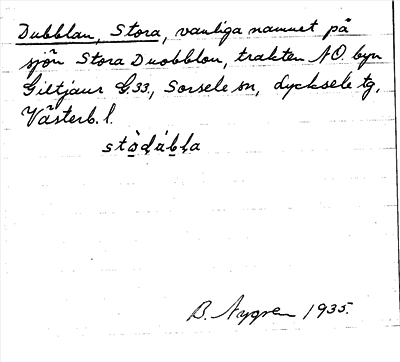 Dubblan, Stora, vanliga namnet på
sjön Stora Duobblon, trakten NO. byn
Giltjaur G33, Sorsele sn, Lycksele tg,
Västerb. l.
B. Nygren 1935.